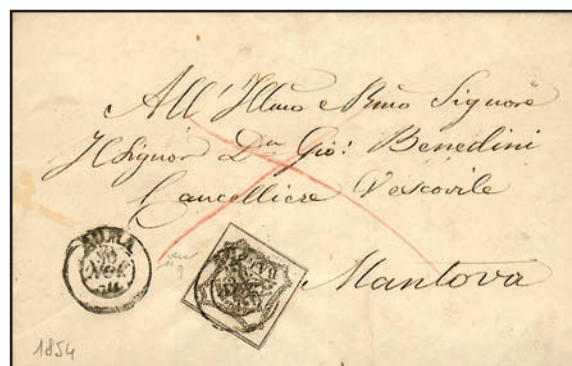 All'Illmo e Rmo Signore
Il Signor Dn Gio: Benedini
Cancelliere Vescovile
Mantova
ROMA
NOV
1854